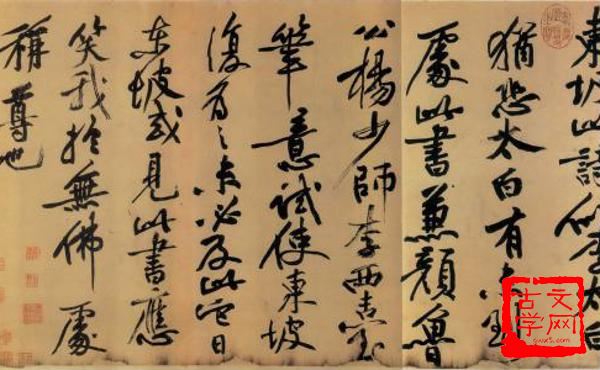 東坡此詩似李太白
猶恐太白有未到
處此書兼顏魯
公楊少師李西臺
筆意試使東坡
復爲之未必及此它日
東坡或見此書應
笑我於無佛處
稱尊也
古文学网
gwx5.com